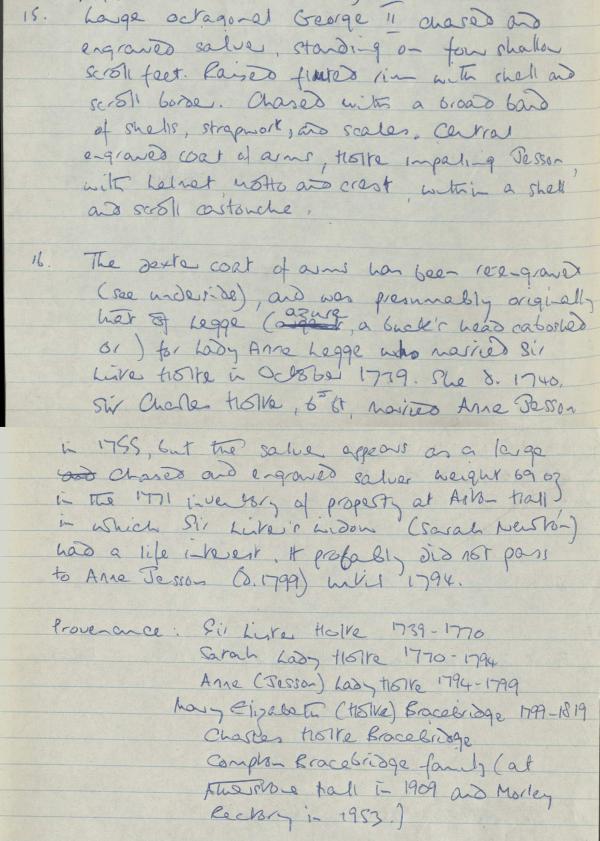 15. Large octagonal George II chased and
engraved salver, standing on four shallow
scroll feet. Raised fluted rim with shell and
scroll border. Chased with a broad band
of shells, strapwork, and scales. Central
engraved coat of arms, Holte impaling Jesson,
with helmet, motto and crest, within a shell
and scroll cartouche.
16. The dexter coat of arms has been re-engraved
(see underside), and was presumably originally
that of Legge (azure, a buck's head caboshed
or) for Lady Anne Legge who married Sir
Lister Holte in October 1739. She d. 1740.
Sir Charles Holte, 6th Bt, married Anne Jesson
in 1755, but the salver appears as a large
chased and engraved salver weight 69 oz
in the 1771 inventory of property at Aston Hall
in which Sir Lister's widow (Sarah Newton)
had a life interest. It probably did not pass
to Anne Jesson (d. 1799) until 1794.
Provenance: Sir Lister Holte 1739-1770
Sarah Lady Holte 1770-1794
Anne (Jesson) Lady Holte 1794-1799
Mary Elizabeth (Holte) Bracebridge 1799-1819
Charles Holte Bracebridge
Compton Bracebridge family (at
Atherstone Hall in 1909 and Morley
Rectory in 1953.)